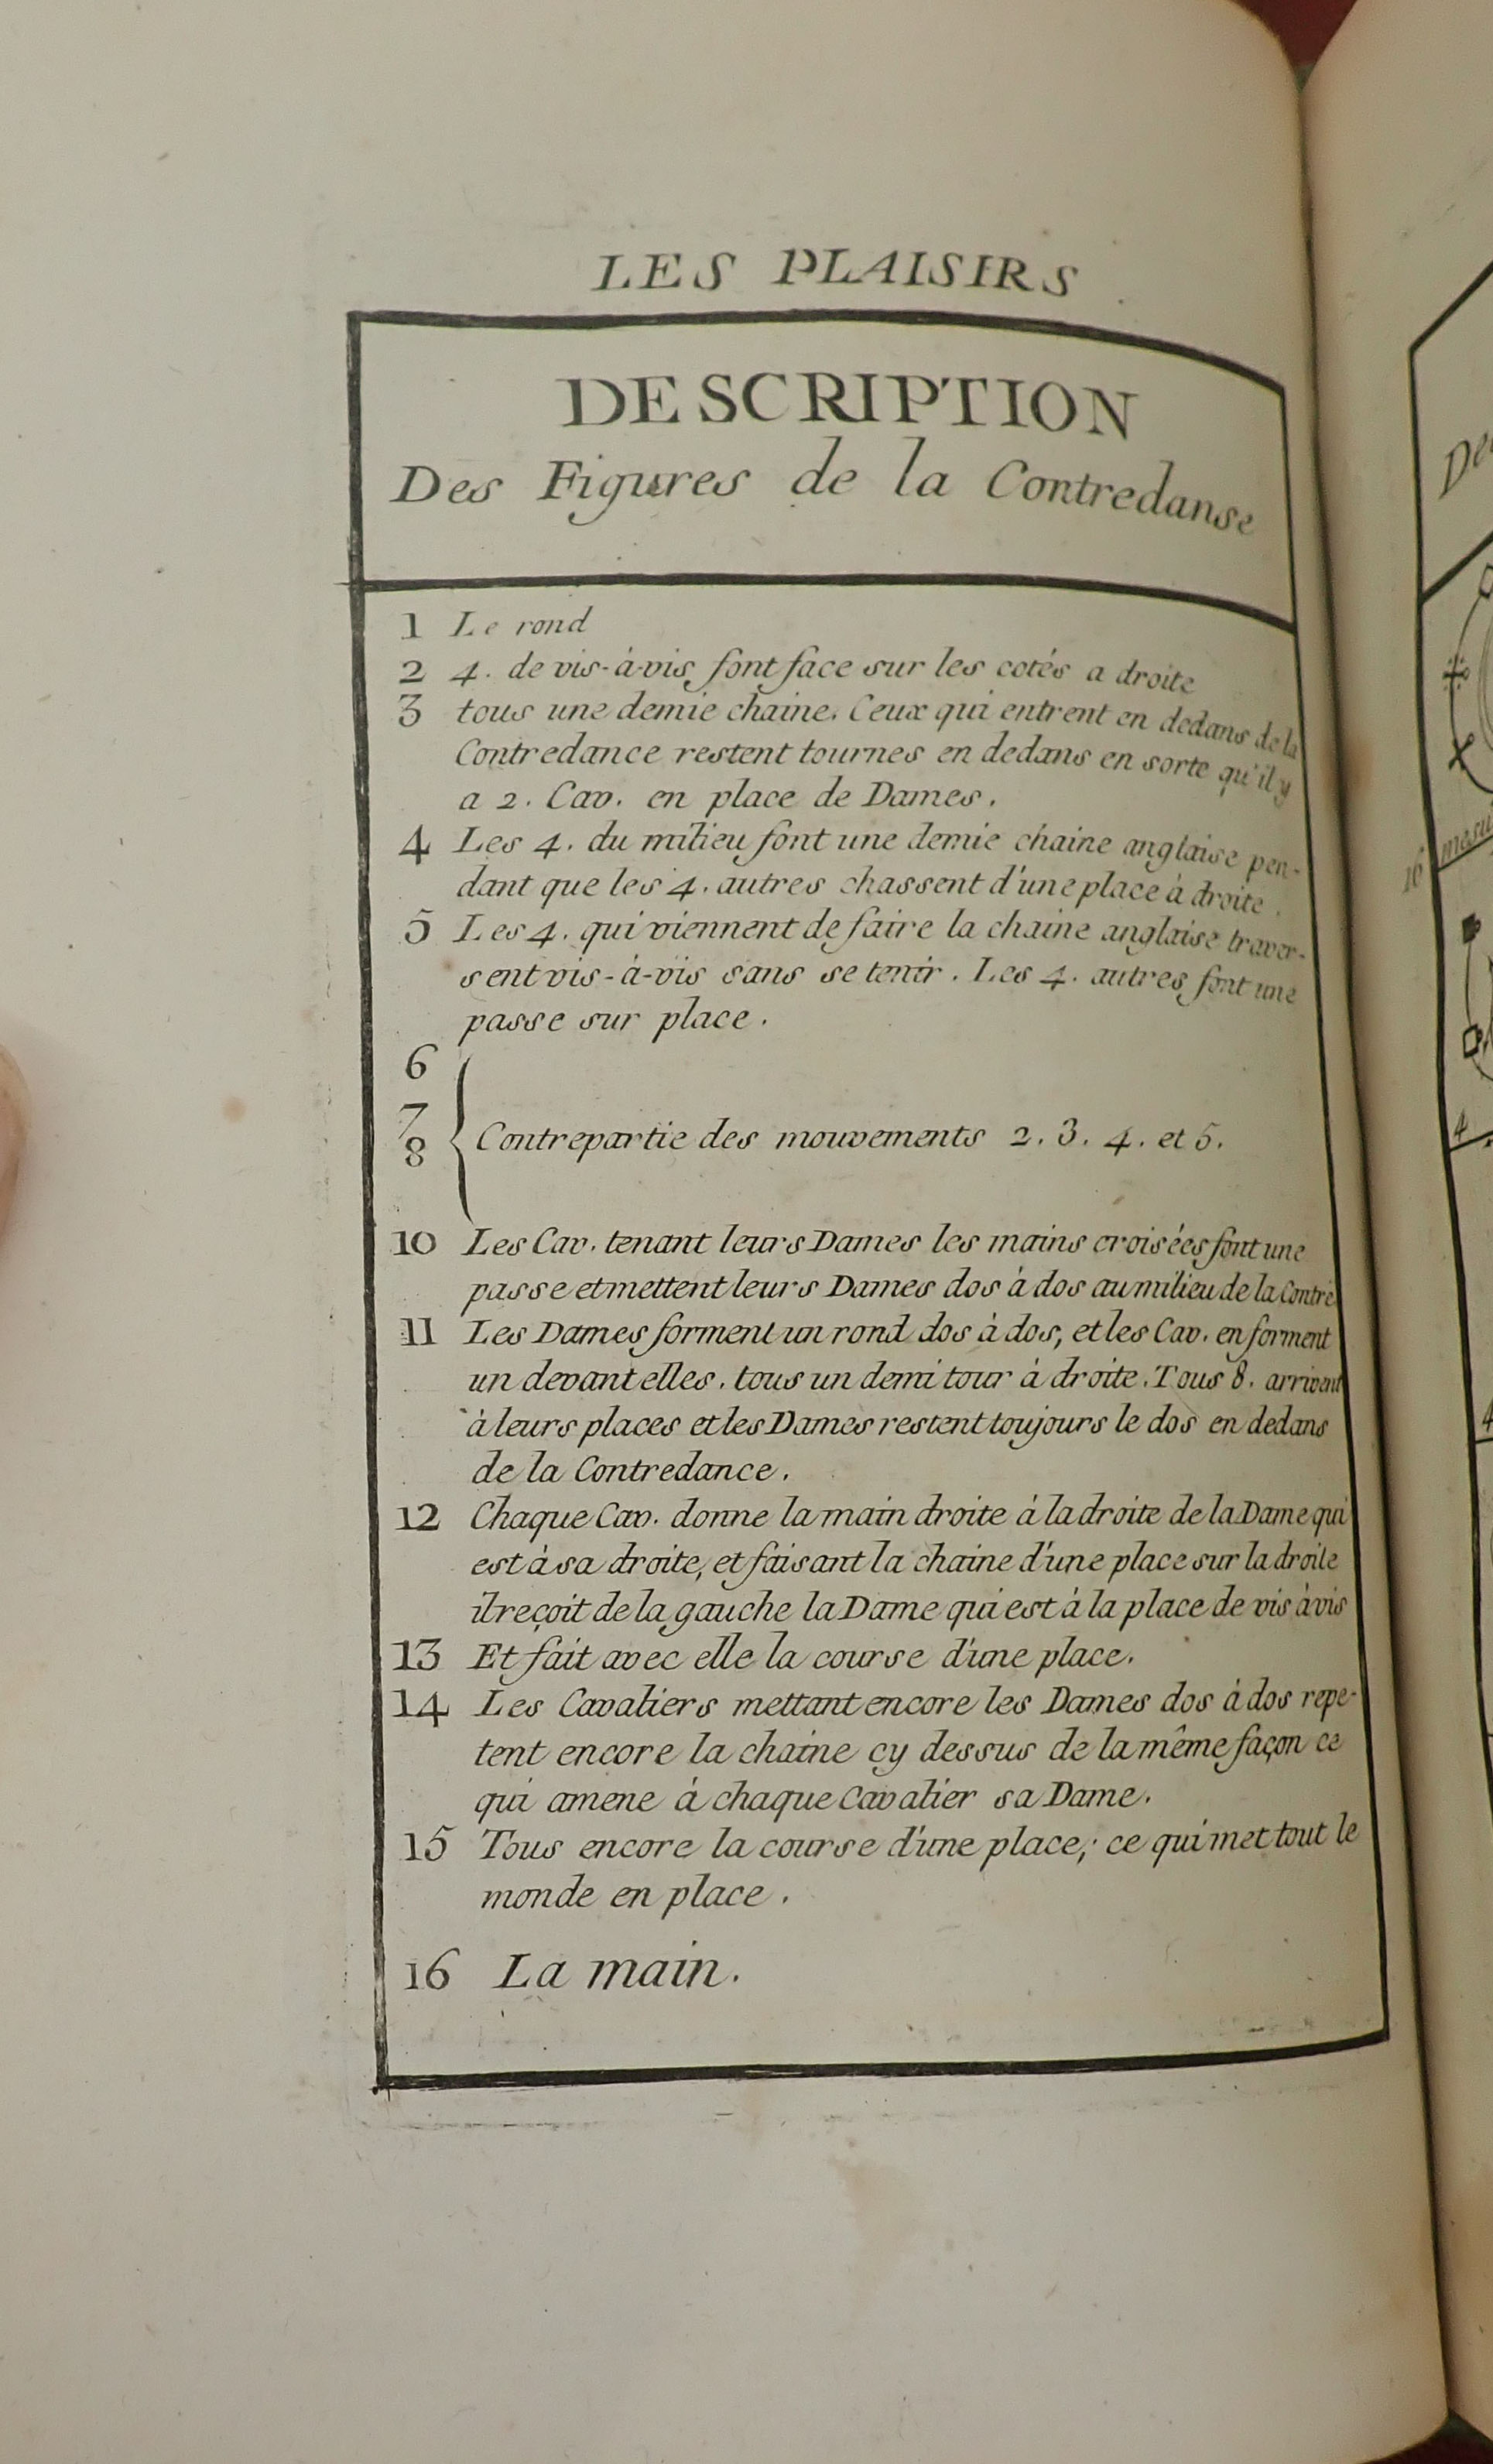 LES PLAISIRS
DESCRIPTION
Des Figures de la Contredanse
1 Le rond
2 4. de vis-à-vis font face sur les cotés a droite
3 tous une demie chaine. Ceux qui entrent en dedans de la
Contredance restent tournes en dedans en sorte qu'il y
a 2. Cav. en place de Dames.
4 Les 4. du milieu font une demie chaine anglaise pen-
dant que les 4. autres chassent d'une place à droite.
5 Les 4. qui viennent de faire la chaine anglaise traver-
sent vis-à-vis sans se tenir. Les 4. autres font une
passe sur place.
6
7
8
Contrepartie des mouvements 2. 3. 4. et 5.
10 Les Cav. tenant leurs Dames les mains croisées font une
passe et mettent leurs Dames dos à dos au milieu de la Contre
11 Les Dames forment un rond dos à dos, et les Cav. en forment
un devant elles. tous un demi tour à droite. Tous 8. arrivent
à leurs places et les Dames restent toujours le dos en dedans
de la Contredance.
12 Chaque Cav. donne la main droite à la droite de la Dame qui
est à sa droite, et faisant la chaine d'une place sur la droite
il reçoit de la gauche la Dame qui est à la place de vis à vis
13 Et fait avec elle la course d'une place.
14 Les Cavaliers mettant encore les Dames dos à dos repe-
tent encore la chaine cy dessus de la même façon ce
qui amene à chaque Cavalier sa Dame.
15 Tous encore la course d'une place; ce qui met tout le
monde en place.
16 La main.
16
4
4